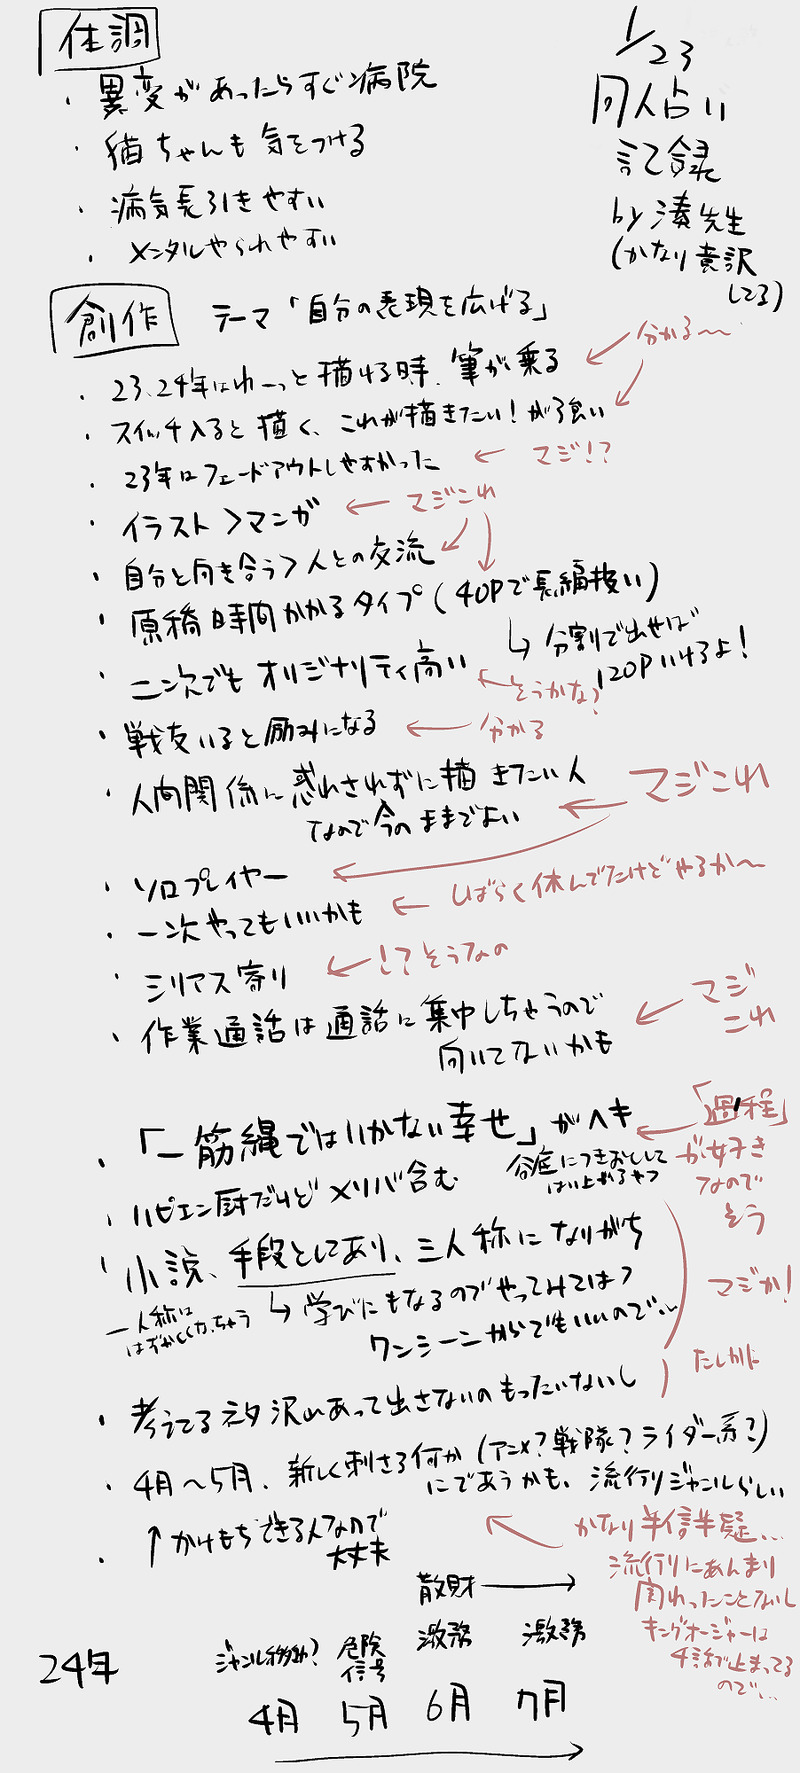 1/23
同人占い
記録
by 湊先生
(かなり意訳
してる)
体調
・異変があったらすぐ病院
・猫ちゃんも気をつける
・病気長引きやすい
・メンタルやられやすい
創作 テーマ「自分の表現を広げる」
・23、24年はわーっと描ける時、筆が乗る
分かる〜
・スイッチ入ると描く、これが描きたい!が強い
・23年はフェードアウトしやすかった
マジ!?
・イラスト>マンガ
マジこれ
・自分と向き合う>人との交流
・原稿時間かかるタイプ(40Pで長編扱い)
↳分割で出せば
120Pいけるよ!
・二次でもオリジナリティ高い
そうかな?
・戦友いると励みになる
分かる
・人間関係に惑わされずに描きたい人
なので今のままでよい
マジこれ
・ソロプレイヤー
・一次やってもいいかも
しばらく休んでたけどやるか〜
・シリアス寄り
!?そうなの
・作業通話は通話に集中しちゃうので
向いてないかも
マジ
これ
・「一筋縄ではいかない幸せ」がヘキ
谷底につきおとして
はい上がるやつ
「過程」
が好き
なので
そう
・ハピエン厨だけどメリバ含む
・小説、手段としてあり、三人称になりがち
一人称は
はずかしくなっちゃう
↳学びにもなるのでやってみては?
ワンシーンからでもいいので…
マジか!
・考えてるネタ沢山あって出さないのもったいないし
たしかに
・4月〜5月、新しく刺さる何か(アニメ?戦隊?ライダー系?)
にであうかも、流行りジャンルらしい
・↑かけもちできる人なので
大丈夫
かなり半信半疑…
流行りにあんまり
関わったことないし
キングオージャーは
4話で止まってる
ので…
散財→
24年
ジャンル移動?
危険
信号
激務
激務
4月 5月 6月 7月